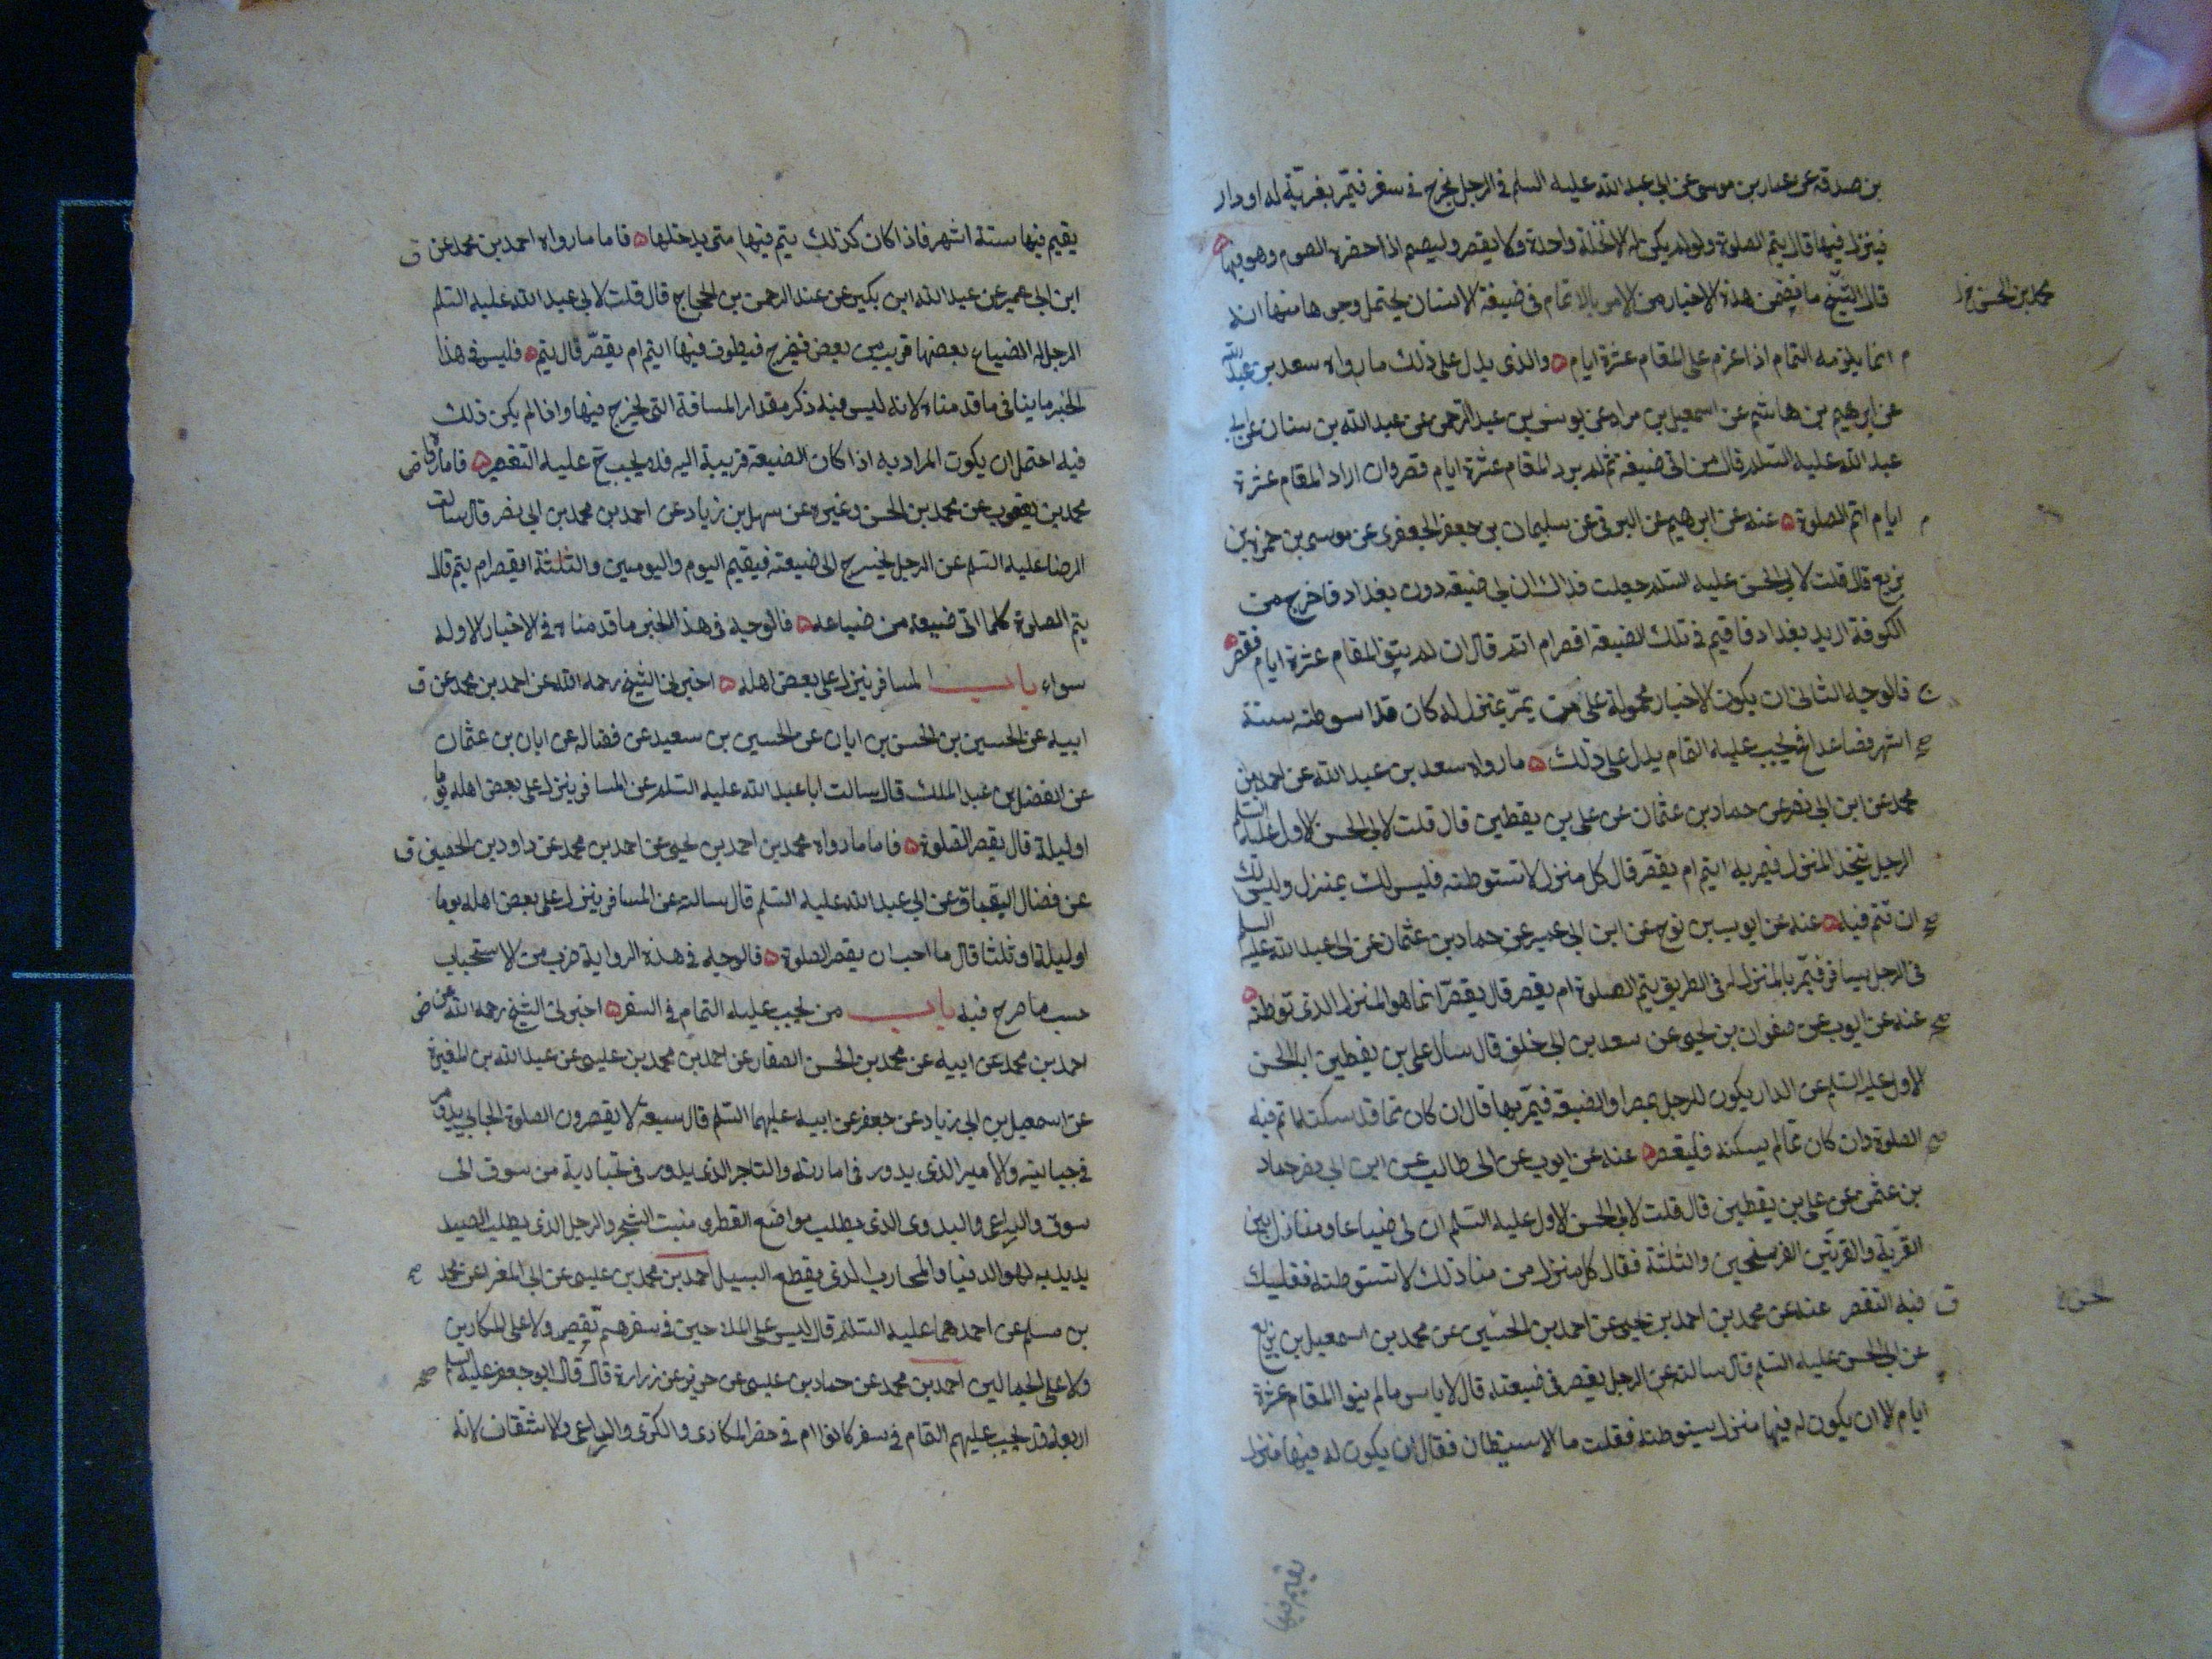 بن صدقه عن عمار بن موسى عن ابى عبد الله عليه السلم فى الرجل يخرج فى سفر فيمّر بقريّة له او دار
فينزل فيها قال يتم الصلوة ولو لم يكن له الا نخلة واحدة ولا يقصر وليصم اذا حضره الصوم وهو فيها
قال الشيخ ما تضمن هذه الاخبار من الامر بالاتمام فى ضيعة الانسان يحتمل وجوها منها انه
محمد بن الحسن خ ل
م انما يلزمه التمام اذا عزم على المقام عشرة ايام والذى يدل على ذلك ما رواه سعد بن عبد الله
عن ابرهيم بن هاشم عن اسمعيل بن مراد عن يونس بن عبد الرحمن عن عبد الله بن سنان عن ابى
عبد الله عليه السلم قال من اتى ضيعة ثم لم يرد المقام عشرة ايام قصر وان اراد المقام عشرة
م ايام اتم الصلوة عنه عن ابرهيم عن البرقى عن سليمان بن جعفر الجعفرى عن موسى بن حمزة بن
بزيع قال قلت لابى الحسن عليه السلم جعلت فداك ان لى ضيعه دون بغداد فاخرج من
الكوفة اريد بغداد فاقيم فى تلك الضيعة اقصر ام اتم قال ان لم ينو المقام عشرة ايام فقصر
فالوجه الثانى ان يكون الاخبار محمولة على من يمرّ بمنزل له كان قد استوطنه ستة
صح اشهر فصاعدا فح يجب عليه التمام يدل على ذلك ما رواه سعد بن عبد الله عن احمد بن
محمد عن ابن ابى نصر عن حماد بن عثمان عن على بن يقطين قال قلت لابى الحسن الاول عليه السلم
الرجل يتخذ المنزل فيمر به ايتم ام يقصّر قال كل منزل لا تستوطنه فليس لك بمنزل وليس لك
صح ان تتم فيه عنه عن ايوب بن نوح عن ابن ابى عمير عن حماد بن عثمان عن ابى عبد الله عليه السلم
فى الرجل يسافر فيمّر بالمنزل له فى الطريق يتم الصلوة ام يقصر قال يقصّر انما هو المنزل الذى توطنه
صح عنه عن ايوب عن صفوان بن يحيى عن سعد بن ابى خلف قال سال على بن يقطين ابا الحسن
الاول عليه السلم عن الدار يكون للرجل بمصر او الضيعة فيمّر بها قال ان كان مما قد سكنه اتم فيه
صح الصلوة وان كان ممّا لم يسكنه فليقصر عنه عن ايوب عن ابى طالب عن ابن ابى نصر حماد
بن عثمن عن على بن يقطين قال قلت لابى الحسن الاول عليه السلم ان لى ضياعا ومنازل بين
القرية والقريتين الفرسخين والثلثة فقال كل منزل من منازلك لا تستوطنه فعليك
ق فيه التقصر عنه عن محمد بن احمد بن يحيى عن احمد بن الحسين عن محمد بن اسمعيل بن بزيع
الحسن
عن ابى الحسن عليه السلم قال سالته عن الرجل يقصر فى ضيعته قال لا باس ما لم ينو المقام عشرة
ايام الا ان يكون له فيها منزل يستوطنه فقلت ما الاستيطان فقال ان يكون له فيها منزل
يقيم فيها
يقيم فيها ستة اشهر فاذا كان كذلك يتم فيها متى يدخلها فاما ما رواه احمد بن محمد عن ق
ابن ابى عمير عن عبد الله ابن بكير عن عبد الرحمن بن الحجاج قال قلت لابى عبد الله عليه السلم
الرجل له الضياع بعضها قريب من بعض فيخرج فيطوف فيها ايتم ام يقصّر قال يتم فليس فى هذا
الخبر ما ينافى ما قدمناه لانه ليس فيه ذكر مقدار المسافة التى يخرج فيها واذا لم يكن ذلك
فيه احتمل ان يكون المراد به اذا كان الضيعة قريبة اليه فلا يجب ح عليه التقصير فاما ما رواه ض
محمد بن يعقوب عن محمد بن الحسن وغيره عن سهل بن زياد عن احمد بن محمد بن ابى نصر قال سالت
الرضا عليه السلم عن الرجل يخرج الى ضيعته فيقيم اليوم واليومين والثلثة ايقصر ام يتم قال
يتم الصلوة كلما اتى ضيعة من ضياعه فالوجه فى هذا الخبر ما قدمناه فى الاخبار الاوله
سواء باب المسافر ينزل على بعض اهله اخبرنى الشيخ رحمه الله عن احمد بن محمد عن ق
ابيه عن الحسين بن الحسن بن ابان عن الحسين بن سعيد عن فضاله عن ابان بن عثمان
عن الفضل بن عبد الملك قال سالت ابا عبد الله عليه السلم عن المسافر ينزل على بعض اهله يوما
او ليلة قال يقصر الصلوة فاما ما رواه محمد بن احمد بن يحيى عن احمد بن محمد عن داود بن الحصين ق
عن فضال البقباق عن ابى عبد الله عليه السلم قال سالته عن المسافر ينزل على بعض اهله يوما
او ليلة او ثلثا قال ما احب ان يقصر الصلوة فالوجه فى هذه الرواية ضرب من الاستحباب
حسب ما صرح فيه باب من يجب عليه التمام فى السفر اخبرنى الشيخ رحمه الله عن ض
احمد بن محمد عن ابيه عن محمد بن الحسن الصفار عن احمد بن محمد بن عليسى عن عبد الله بن المغيرة
عن اسمعيل بن ابى زياد عن جعفر عن ابيه عليهما السلم قال سبعة لا يقصرون الصلوة الجابى يدور
فى جبايته والامير الذى يدور فى امارته والتاجر الذى يدور فى تجارته من سوق الى
سوق والراعى والبدوى الذى يطلب مواضع القطر ومنبت الشجر والرجل الذى يطلب الصيد
يريد به لهو الدنيا والمحارب الذى يقطع السبيل احمد بن محمد بن عيسى عن ابى المغرا عن محمد صح
بن مسلم عن احدهما عليه السلم قال ليس على الملاحين فى سفرهم تقصير ولا على المكارين
ولا على الجمالين احمد بن محمد عن حماد بن عيسى عن حريز عن زرارة قال قال ابو جعفر عليه السلم صح
اربعة قد يجب عليهم التمام فى سفر كانوا ام فى حضر المكارى والكرى والراعى والاشتقان لانه